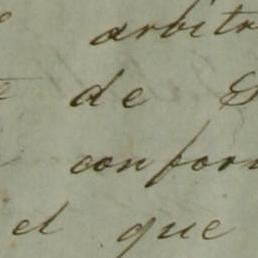 arbitr
de S
confor
el que